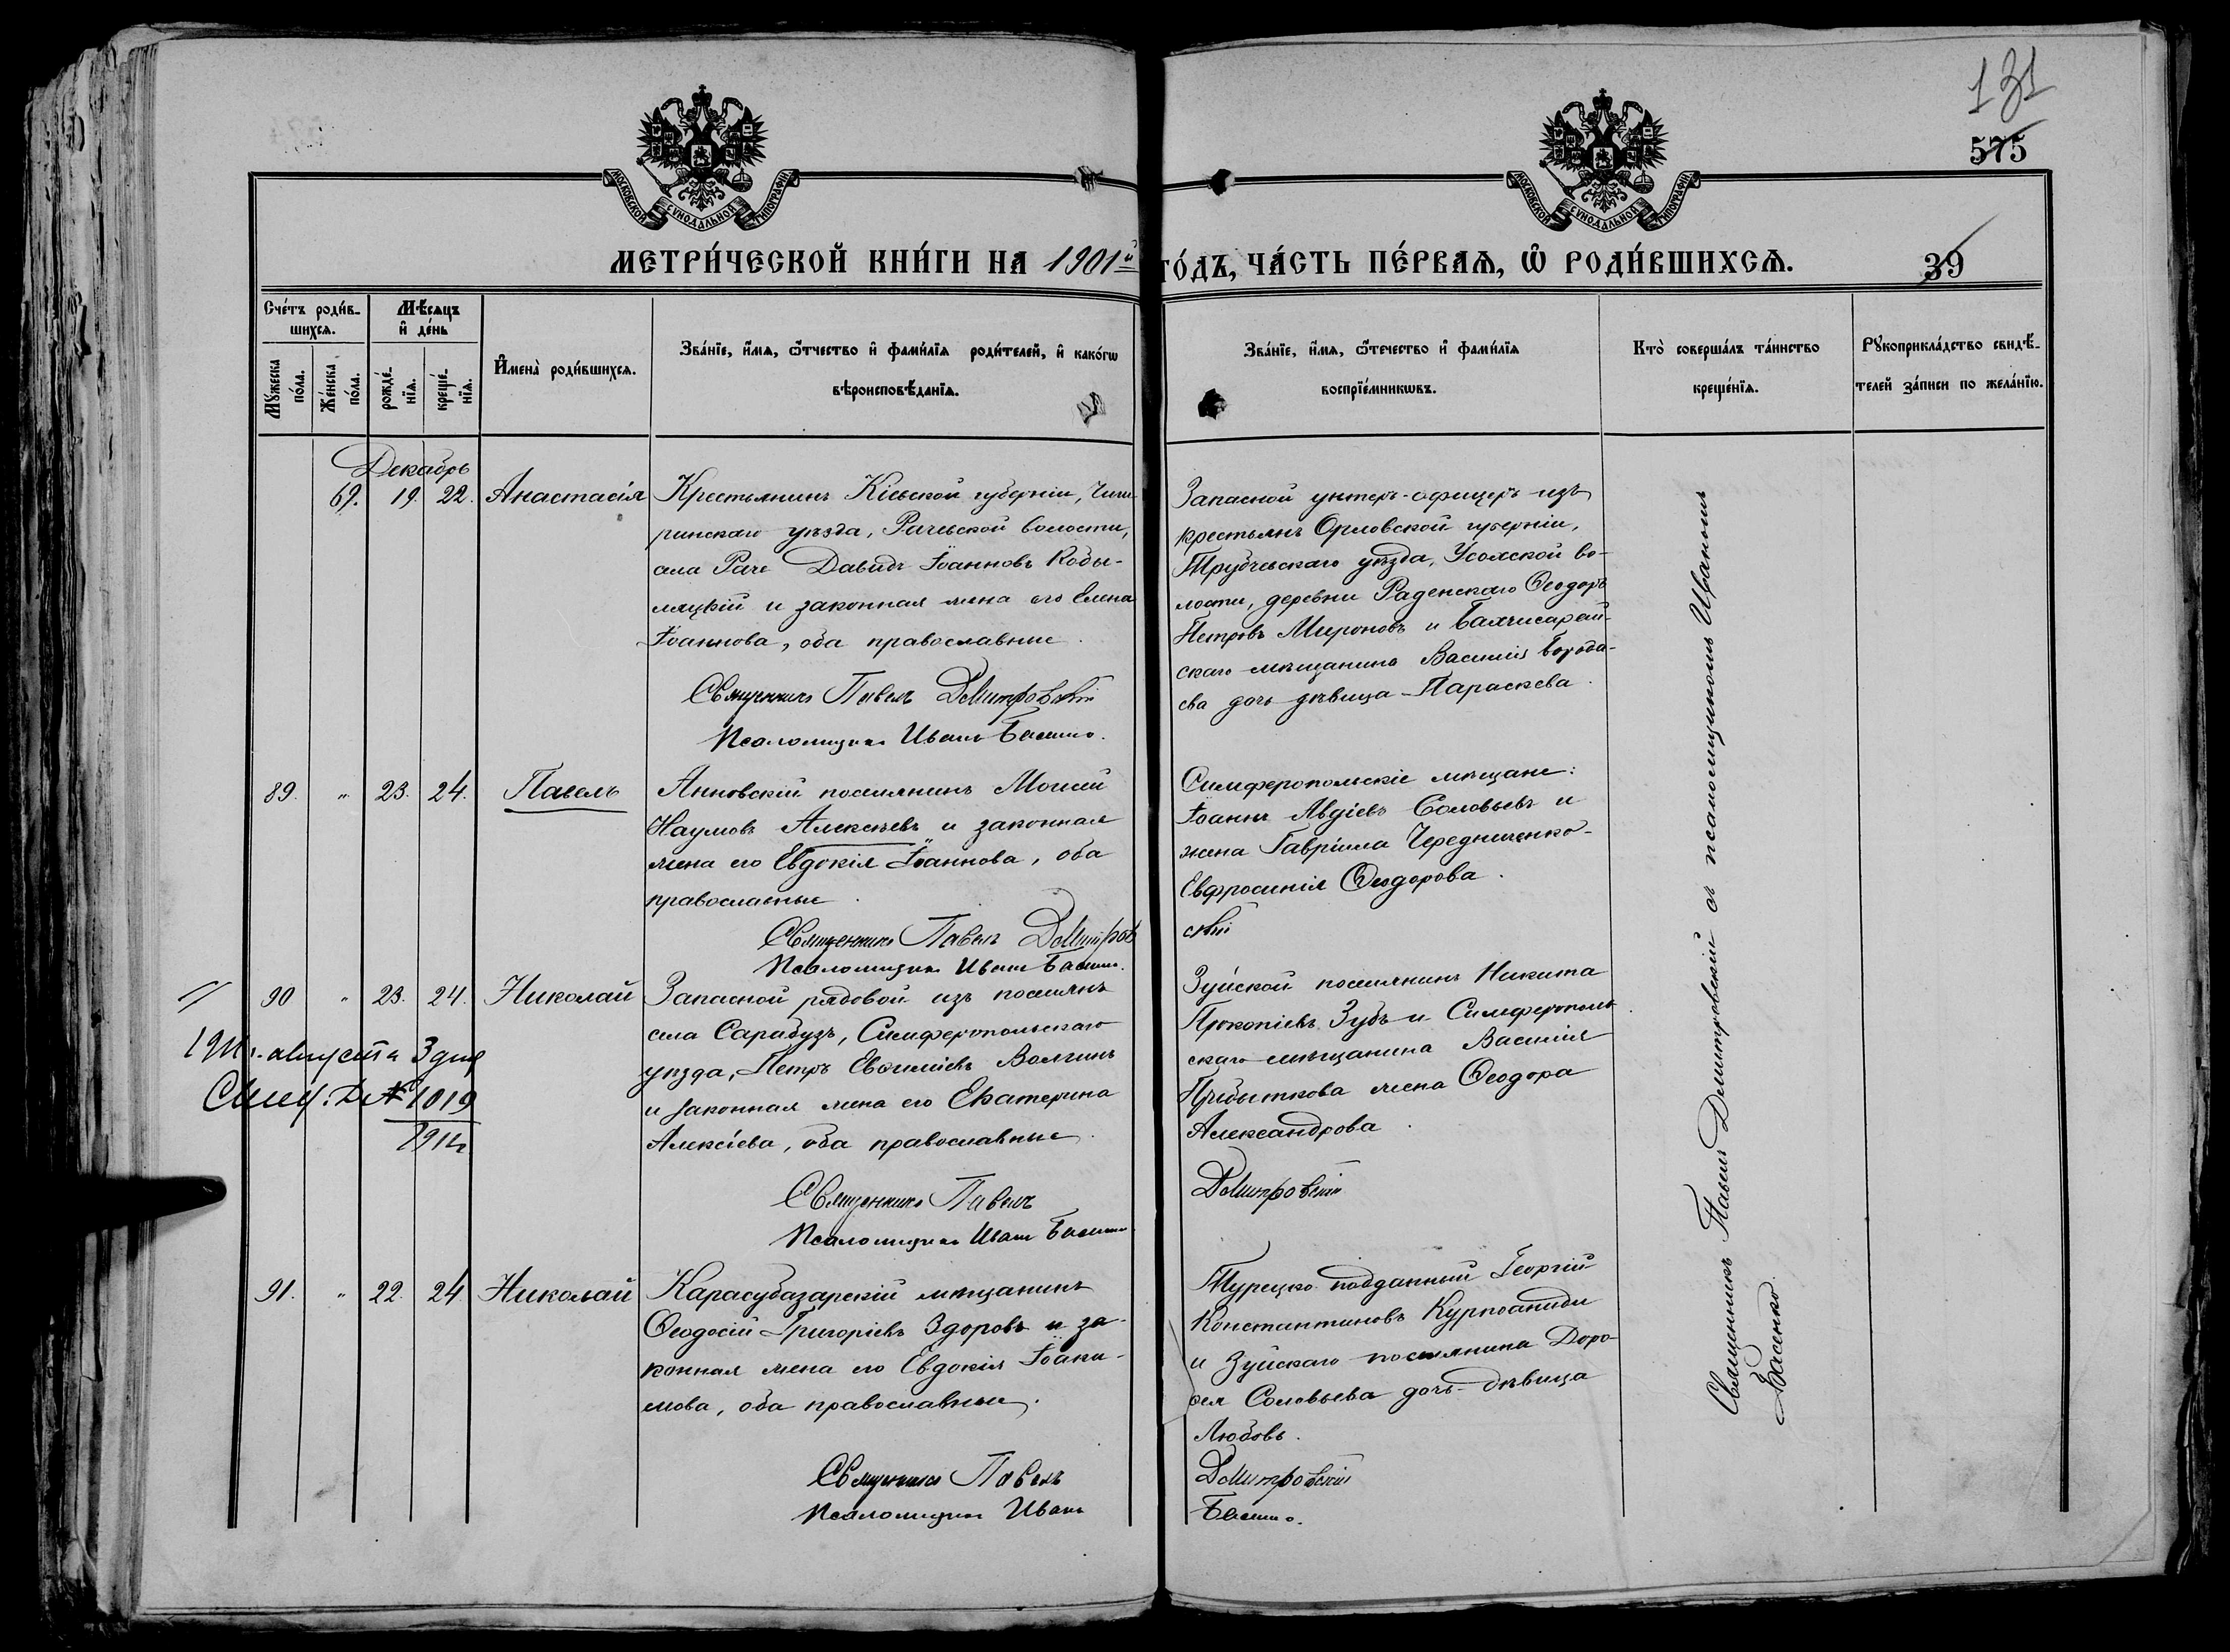 131
575
МОСКОВСКОЙ СУНОДАЛЬНОЙ ТИПОГРАФІИ
МОСКОВСКОЙ СУНОДАЛЬНОЙ ТИПОГРАФІИ
МЕТРИ́ЧЕСКОЙ КНИ́ГИ НА 1901й ГО́ДЪ, ЧА́СТЬ ПЕ́РВАѦ, Ѡ РОДИ́ВШИХСѦ.
39
Сче́тъ роди́в-
шихсѧ.
Мꙋ́жеска по́ла.
Же́нска по́ла.
Мѣ́сѧцъ
и҆ де́нь
рожде́-
нїѧ.
креще́-
нїѧ.
И҆мена̀ роди́вшихсѧ.
Зва́нїе, и҆́мѧ, ѻ҆́тчество и҆ фами́лїѧ роди́телей, и҆ како́гѡ
вѣроисповѣ́данїѧ.
Зва́нїе, и҆́мѧ, ѻ҆́течество и҆ фами́лїѧ
воспрїе́мникѡвъ.
Кто̀ соверша́лъ та́инство
креще́нїѧ.
Рꙋкоприкла́дство свидѣ́-
телей за́писи по жела́нїю.
Декабрь
69. 19. 22. Анастасія
Крестьянинъ Кіевской губерніи, Чиги-
ринскаго уѣзда, Рачевской волости,
села Раче Давидъ Іоанновъ Кобы-
ляцкій и законная жена его Елена
Іоаннова, оба православные.
Священникъ Павелъ Димитровскій
Псаломщикъ Иванъ Басенко.
Запасной унтеръ-офицеръ изъ
крестьянъ Орловской губерніи,
Трубчевскаго уѣзда, Усожской во-
лости, деревни Раденскаго Ѳеодоръ
Петровъ Мироновъ и Бахчисарай-
скаго мѣщанина Василія Борода-
ева дочь дѣвица Параскева.
89. " 23. 24. Павелъ
Анновскій поселянинъ Моисей
Наумовъ Алексѣевъ и законная
жена его Евдокія Іоаннова, оба
православные.
Священникъ Павелъ Димитров
скій
Псаломщикъ Иванъ Басенко.
Симферопольскіе мѣщане:
Іоаннъ Авдіевъ Соловьевъ и
жена Гавріила Чередниченко-
Евфросинія Ѳеодорова.
90 " 23. 24. Николай
Запасной рядовой изъ поселянъ
села Сарабузъ, Симферопольскаго
уѣзда, Петръ Евѳиміевъ Волгинъ
и законная жена его Екатерина
Алексіева, оба православные.
Священникъ Павелъ Димитровскій
Псаломщикъ Иванъ Басенко
Зуйской поселянинъ Никита
Прокопіевъ Зубъ и Симферополь-
скаго мѣщанина Василія
Прибыткова жена Ѳеодора
Александрова.
августа 3 дня
№ 1019
91. " 22. 24 Николай
Карасубазарскій мѣщанинъ
Ѳеодосій Григоріевъ Здоровъ и за-
конная жена его Евдокія Іоаки-
мова, оба православные.
Священникъ Павелъ Димитровскій
Псаломщикъ Иванъ Басенко.
Турецко-подданный Георгій
Константиновъ Курпоаниди
и Зуйскаго поселянина Доро-
ѳея Соловьева дочь-дѣвица
Любовь.
Священникъ Павелъ Димитровскій съ псаломщикомъ Иваномъ
Басенко.